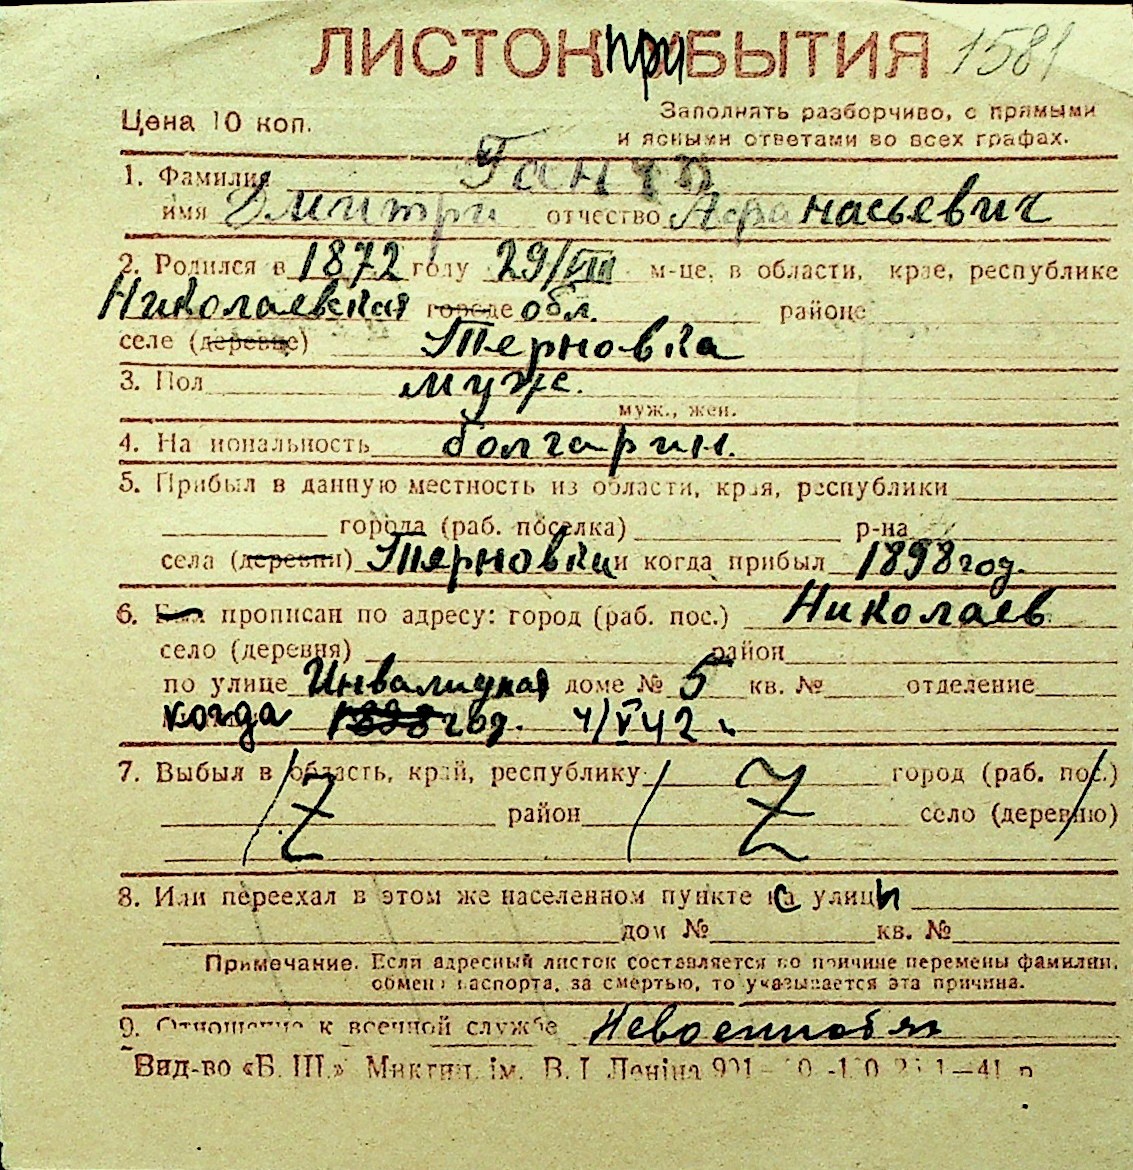 ЛИСТОК ПРИБЫТИЯ 1581
Цена 10 коп.
Заполнять разборчиво, с прямыми
и ясными ответами во всех графах.
1. Фамилия Ганчо
имя Дмитри отчество Афанасьевич
2. Родился в 1872 году 29/VIII м-це, в области, крае, республике
Николаевская городе обл. районе
селе (деревце) Терновка
3. Пол муж.
муж., жен.
4. Национальность болгарин.
5. Прибыл в данную местность из области, края, республики
города (раб. поселка) р-на
села (деревни) Терновки и когда прибыл 1898 год.
6. прописан по адресу: город (раб. пос.) Николаев
село (деревня) район
по улице доме № 5 кв. № отделение
когда 1898 год. 4/V 42 г.
7. Выбыл в область, край, республику город (раб. пос.)
район село (деревню)
Z Z
8. Или переехал в этом же населенном пункте с улицы
дом № кв. №
Примечание. Если адресный листок составляется по причине перемены фамилии,
обмена паспорта, за смертью, то указывается эта причина.
9. Отношение к военной службе Невоеннообяз
Вид-во «Б. Ш.» Микгип. ім. В. І Леніна